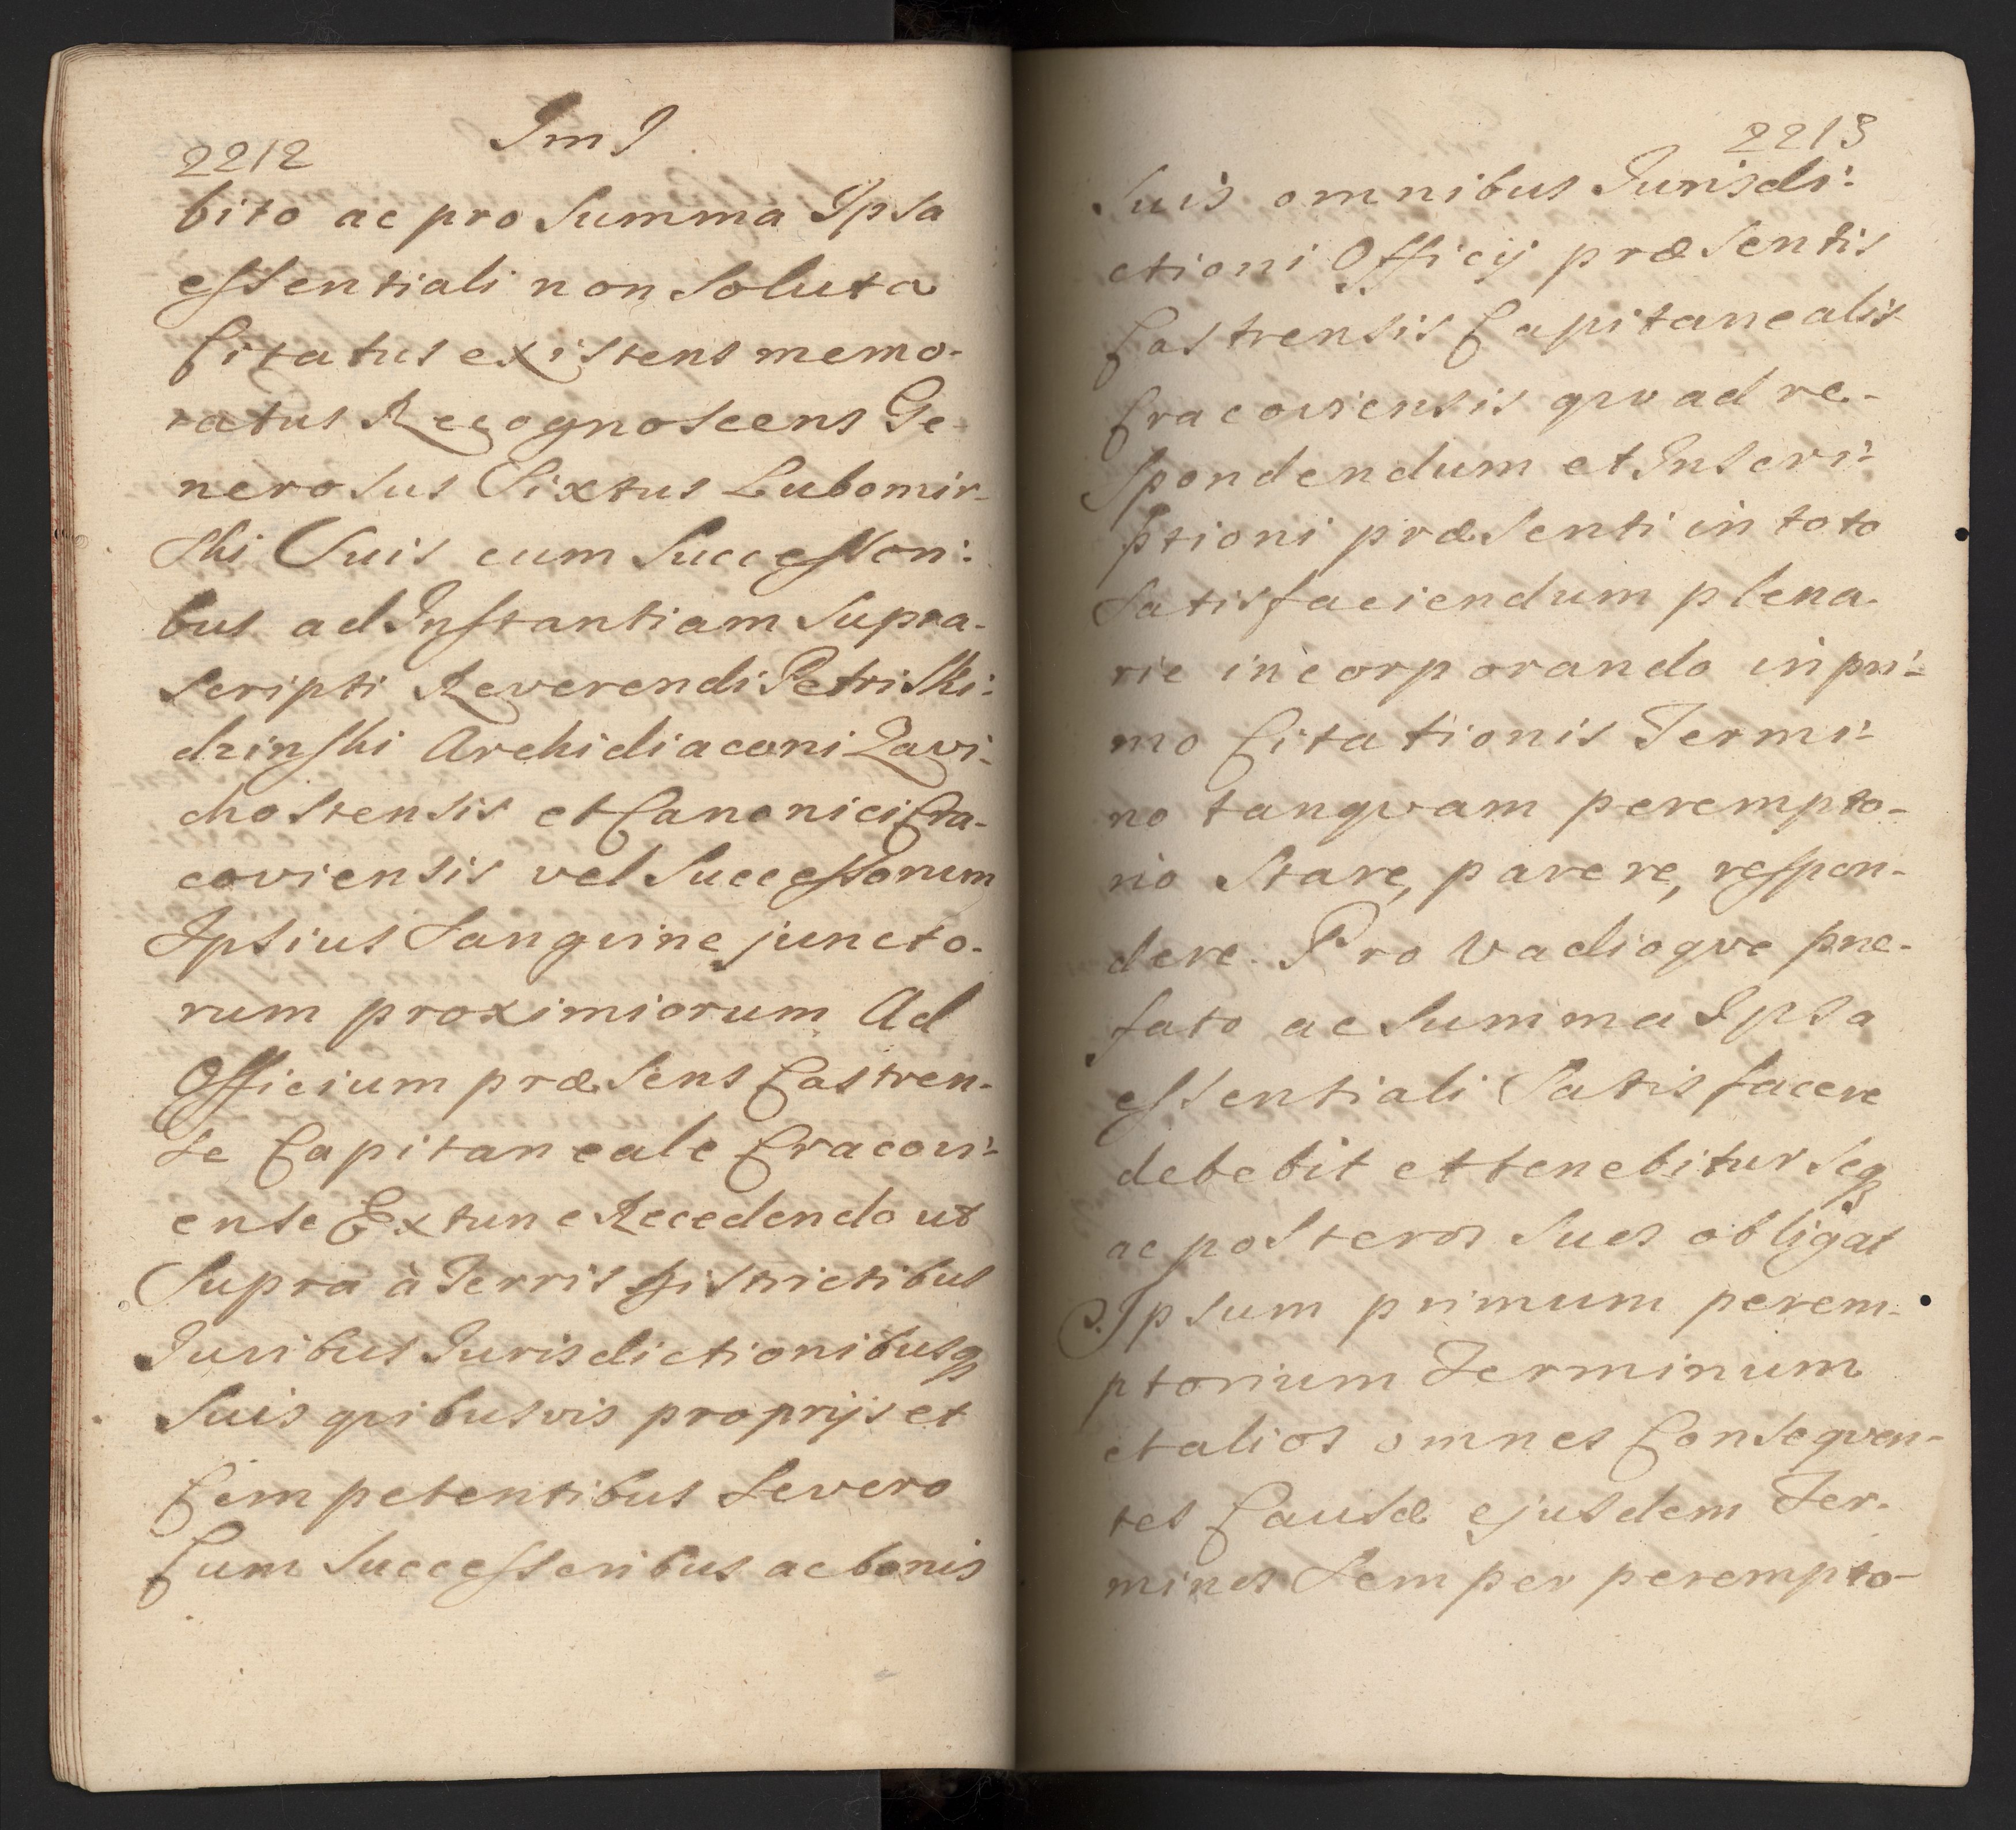 2212
bito ac pro Summa Ipsa
essentiali non Soluta
Citatus existens memo-
ratus Recognoscens Ge
nerosus Sixtus Lubomir-
ski Suis cum Successori-
bus ad Instantiam Supra-
scripti Reverendi Petri Ski-
dzinski Archidiaconi Zavi-
chostensis et Canonici Cra-
coviensis vel Successorum
Ipsius Sangvine juncto-
rum proximiorum Ad
Officium præsens Castren-
se Capitaneale Cracovi-
ense Extunc Recedendo ut
Supra à Terris Districtibus
Juribus Jurisdictionibusq
Suis qvibusvis proprijs et
Competentibus Severo
Cum Successoribus ac bonis
2213
Suis omnibus Jurisdi-
ctioni Officij præsentis
Castrensis Capitanealis
Cracoviensis qvo ad re-
spondendum et Inscri-
ptioni præsenti in toto
Satisfaciendum plena-
rie incorporando in pri-
mo Citationis Termi-
no tanqvam perempto-
rio Stare, parere, respon-
dere. Pro Vadioqve pre-
fato ac Summa Ipsa
essentiali Satisfacere
debebit et tenebitur Seq
ac posteros Suos obligat
Ipsum primum perem-
ptorium Terminum
et alios omnes Conseqven-
tes Causæ ejusdem Ter-
minos Semper perempto-